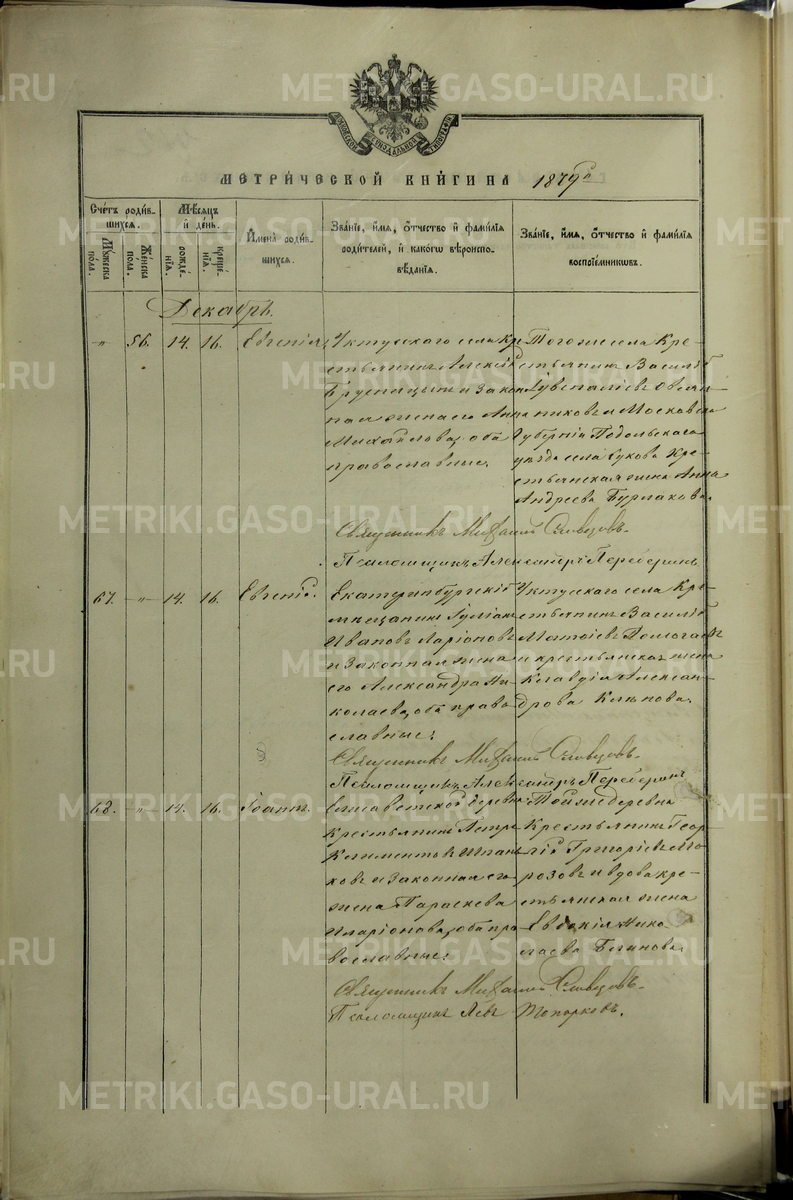 МЕТРИ́ЧЕСКОЙ КНИ́ГИ НА 1879 гѡ
Сче́тъ роди́в-
шихсѧ.
Мꙋ́жеска
по́ла.
Же́нска
по́ла.
Мѣ́сѧцъ
и҆ де́нь.
рожде́-
нїѧ.
креще́-
нїѧ.
И҆мена̀ роди́в-
шихсѧ.
Зва́нїе, и҆́мѧ, ѻ҆́тчество и҆ фами́лїѧ
роди́телей, и҆ како́гѡ вѣроиспо-
вѣ́данїѧ.
Зва́нїе, и҆́мѧ, ѻ҆́тчество и҆ фами́лїѧ
воспрїе́мникѡвъ.
Декабрь.
„ 56. 14. 16. Евгенія
Уктусскаго села Кре-
стьянинъ Алексѣй
Брусницынъ и закон-
ная жена его Анна
Михайлова, оба
православные.
Тогоже села Кре-
стьянинъ Василій
Іувеналіевъ Овсян-
никовъ и Московской
Губерніи Подольскаго
уѣзда села Кре-
стьянская жена Анна
Андреева Бурлакова.
Священникъ Михаилъ Словцовъ.
Псаломщикъ Александръ Переберинъ
67. „ 14. 16. Евгеній.
Екатеринбургскій
мѣщанинъ Іуліанъ
Ивановъ Ларіоновъ
и законная жена
его Александра Ни-
колаева, оба право-
славные;
Уктусскаго села Кре-
стьянинъ Василій
Матѳіевъ
и крестьянская жена
Клавдія Алексан-
дрова
Священникъ Михаилъ Словцовъ.
Псаломщикъ Александръ Переберинъ
68. „ 14. 16. Іоаннъ.
Елисаветской деревни
крестьянинъ Петръ
Климентовъ
и законная его
жена Параскева
Иларіонова, оба пра-
вославные;
Тойже деревни
Крестьянинъ Геор-
гій Григоріевъ Мо-
розовъ и вдова кре-
стьянская жена
Евдокія Нико-
лаева
Священникъ Михаилъ Словцовъ.
Псаломщикъ Левъ Топорковъ.
METRIKI.GASO-URAL.RU